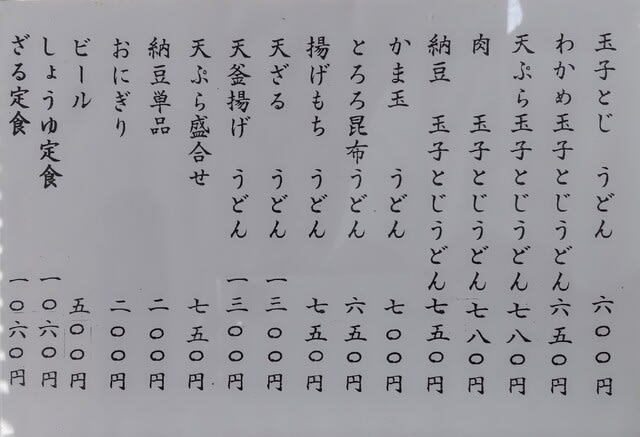 玉子とじ うどん 六〇〇円
わかめ玉子とじうどん 六五〇円
天ぷら玉子とじうどん 七八〇円
肉 玉子とじうどん 七八〇円
納豆 玉子とじうどん 七五〇円
かま玉 うどん 七〇〇円
とろろ昆布うどん 六五〇円
揚げもち うどん 七五〇円
天ざる うどん 一三〇〇円
天釜揚げ うどん 一三〇〇円
天ぷら盛合せ 七五〇円
納豆単品 二〇〇円
おにぎり 二〇〇円
ビール 五〇〇円
しょうゆ定食 一〇六〇円
ざる定食 一〇六〇円